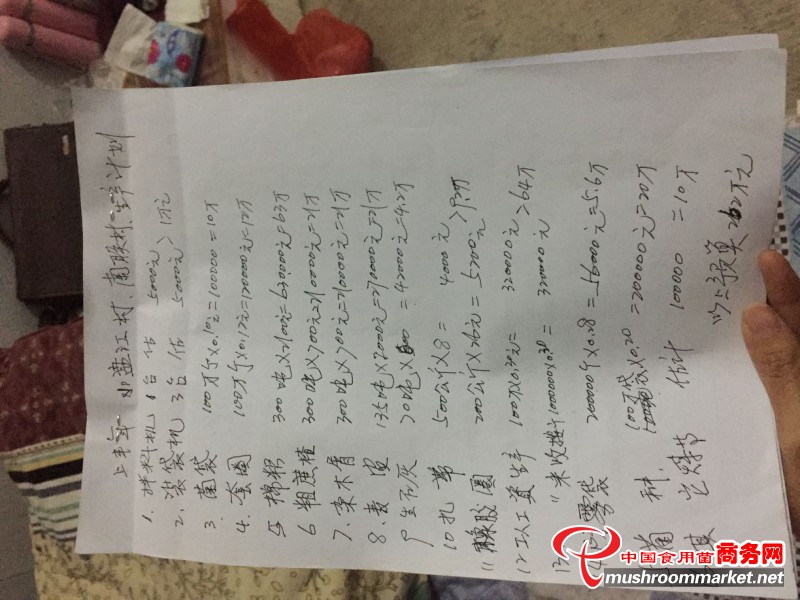 上半年 小盐江村、南股村、生产计划
1. 拌料机 1台 估 50000元
2. 装袋机 3台 估 50000元 > 1万元
3. 菌袋 100万个×0.10元=100000=10万
4. 套圈 100万个×0.12元=120000元=12万
5 棉籽 300吨×2100元=630000元=63万
6 粗蔗楂 300吨×700元=210000元=21万
7. 杂木屑 300吨×700元=210000元=21万
8. 麦皮 135吨×2000元=270000元=27万
9 生石灰 70吨×600=42000元=4.2万
10 扎带 500公斤×8= 4000元
11 橡胶圈 200公斤×26元=5200元
12 以工资生产 100万×0.32元= 320000元
" 采收 320000元 > 64万
袋 200000个×0.28=56000元=5.6万
菌种 100万袋 ×0.20=200000元=20万
估计 100000 =10万
以上预算 262万元
中国食用菌商务网
mushroommarket.net